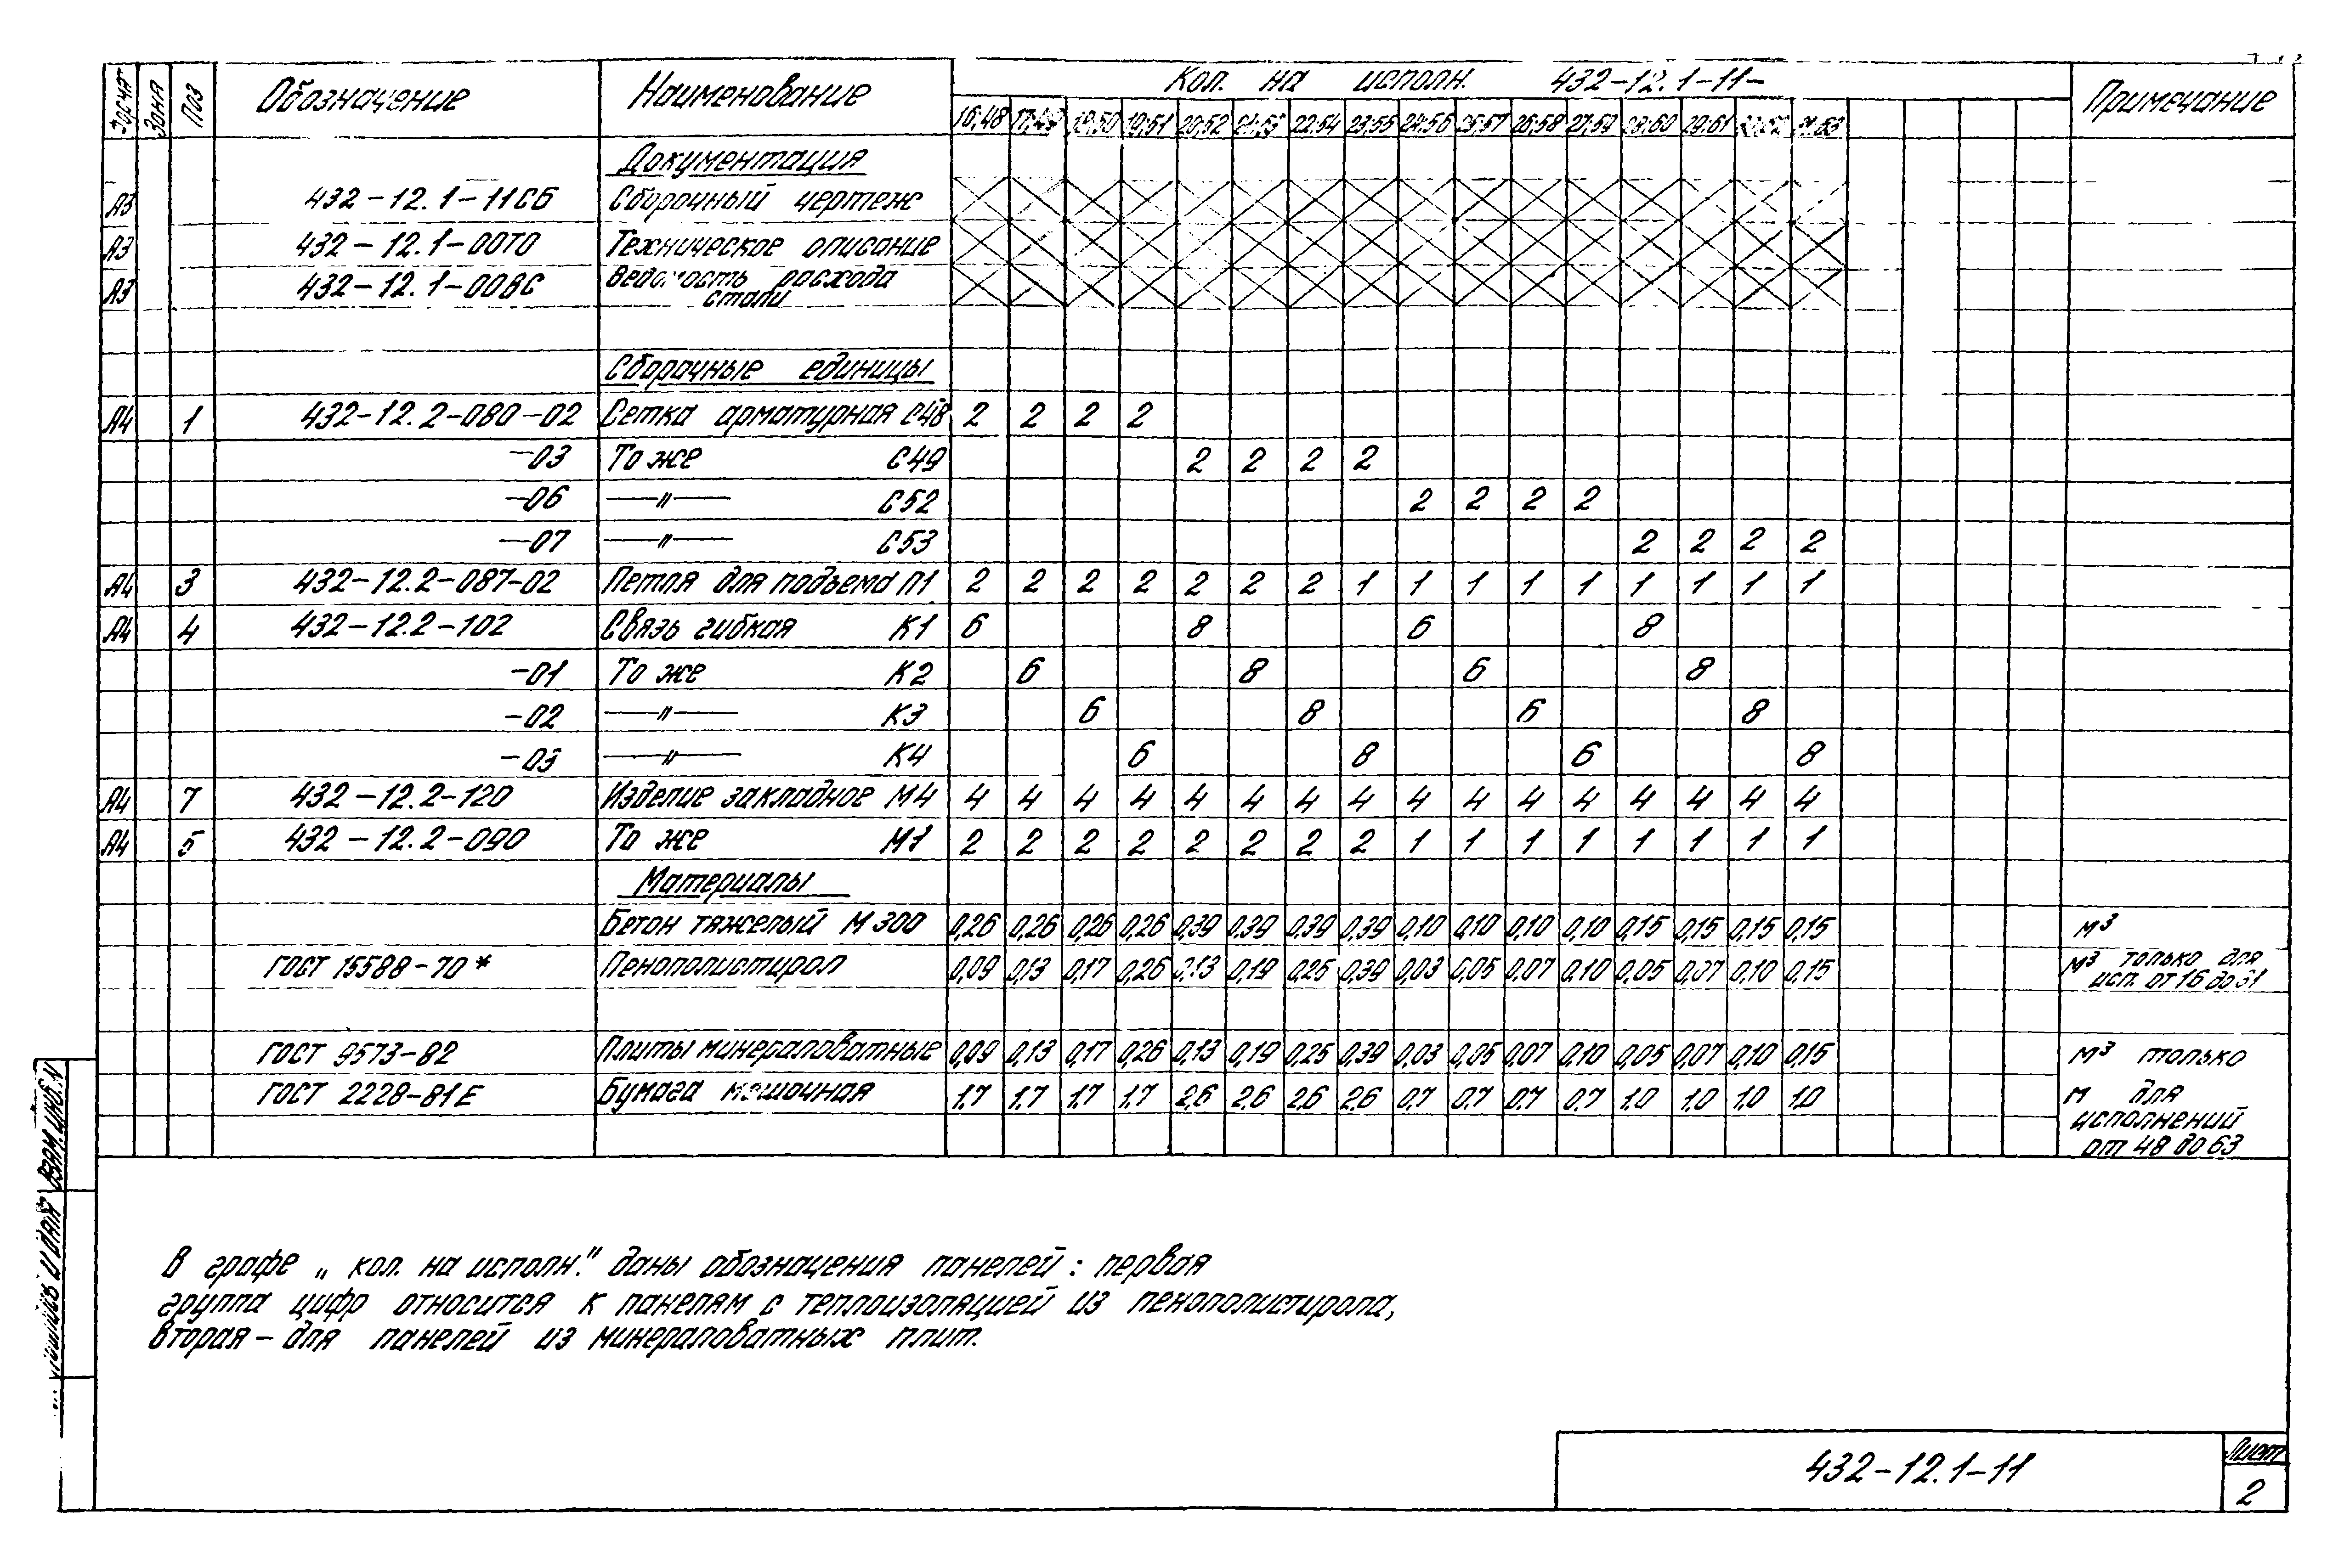 Формат Зона Поз Обозначение Наименование Кол. на исполн. 432-12.1-11- Примечание
16;48 17;49 18;50 19;51 20;52 21;53 22;54 23;55 24;56 25;57 26;58 27;59 28;60 29;61 31;63
Документация
А3 432-12.1-11СБ Сборочный чертеж
А3 432-12.1-00ТО Техническое описание
А3 432-12.1-00ВС Ведомость расхода
стали
Сборочные единицы
А4 1 432-12.2-080-02 Сетка арматурная С48 2 2 2 2
-03 То же С49 2 2 2 2
-06 —"— С52 2 2 2 2
-07 —"— С53 2 2 2 2
А4 3 432-12.2-087-02 Петля для подъема П1 2 2 2 2 2 2 2 1 1 1 1 1 1 1 1 1
А4 4 432-12.2-102 Связь гибкая К1 6 8 6 8
-01 То же К2 6 8 6 8
-02 —"— К3 6 8 6 8
-03 —"— К4 6 8 6 8
А4 7 432-12.2-120 Изделие закладное М4 4 4 4 4 4 4 4 4 4 4 4 4 4 4 4 4
А4 5 432-12.2-090 То же М1 2 2 2 2 2 2 2 2 1 1 1 1 1 1 1 1
Материалы
Бетон тяжелый М300 0,26 0,26 0,26 0,26 0,39 0,39 0,39 0,39 0,10 0,10 0,10 0,10 0,15 0,15 0,15 0,15 м³
ГОСТ 15588-70* Пенополистирол 0,09 0,13 0,17 0,26 0,13 0,19 0,25 0,39 0,03 0,05 0,07 0,10 0,05 0,07 0,10 0,15 м³ только для
исп. от 16 до 31
ГОСТ 9573-82 Плиты минераловатные 0,09 0,13 0,17 0,26 0,13 0,19 0,25 0,39 0,03 0,05 0,07 0,10 0,05 0,07 0,10 0,15 м³ только
ГОСТ 2228-81Е Бумага мешочная 1,7 1,7 1,7 1,7 2,6 2,6 2,6 2,6 0,7 0,7 0,7 0,7 1,0 1,0 1,0 1,0 м для
исполнений
от 48 до 63
В графе „кол. на исполн." даны обозначения панелей: первая
группа цифр относится к панелям с теплоизоляцией из пенополистирола,
вторая – для панелей из минераловатных плит.
Взам. инв. N
432-12.1-11
Лист
2